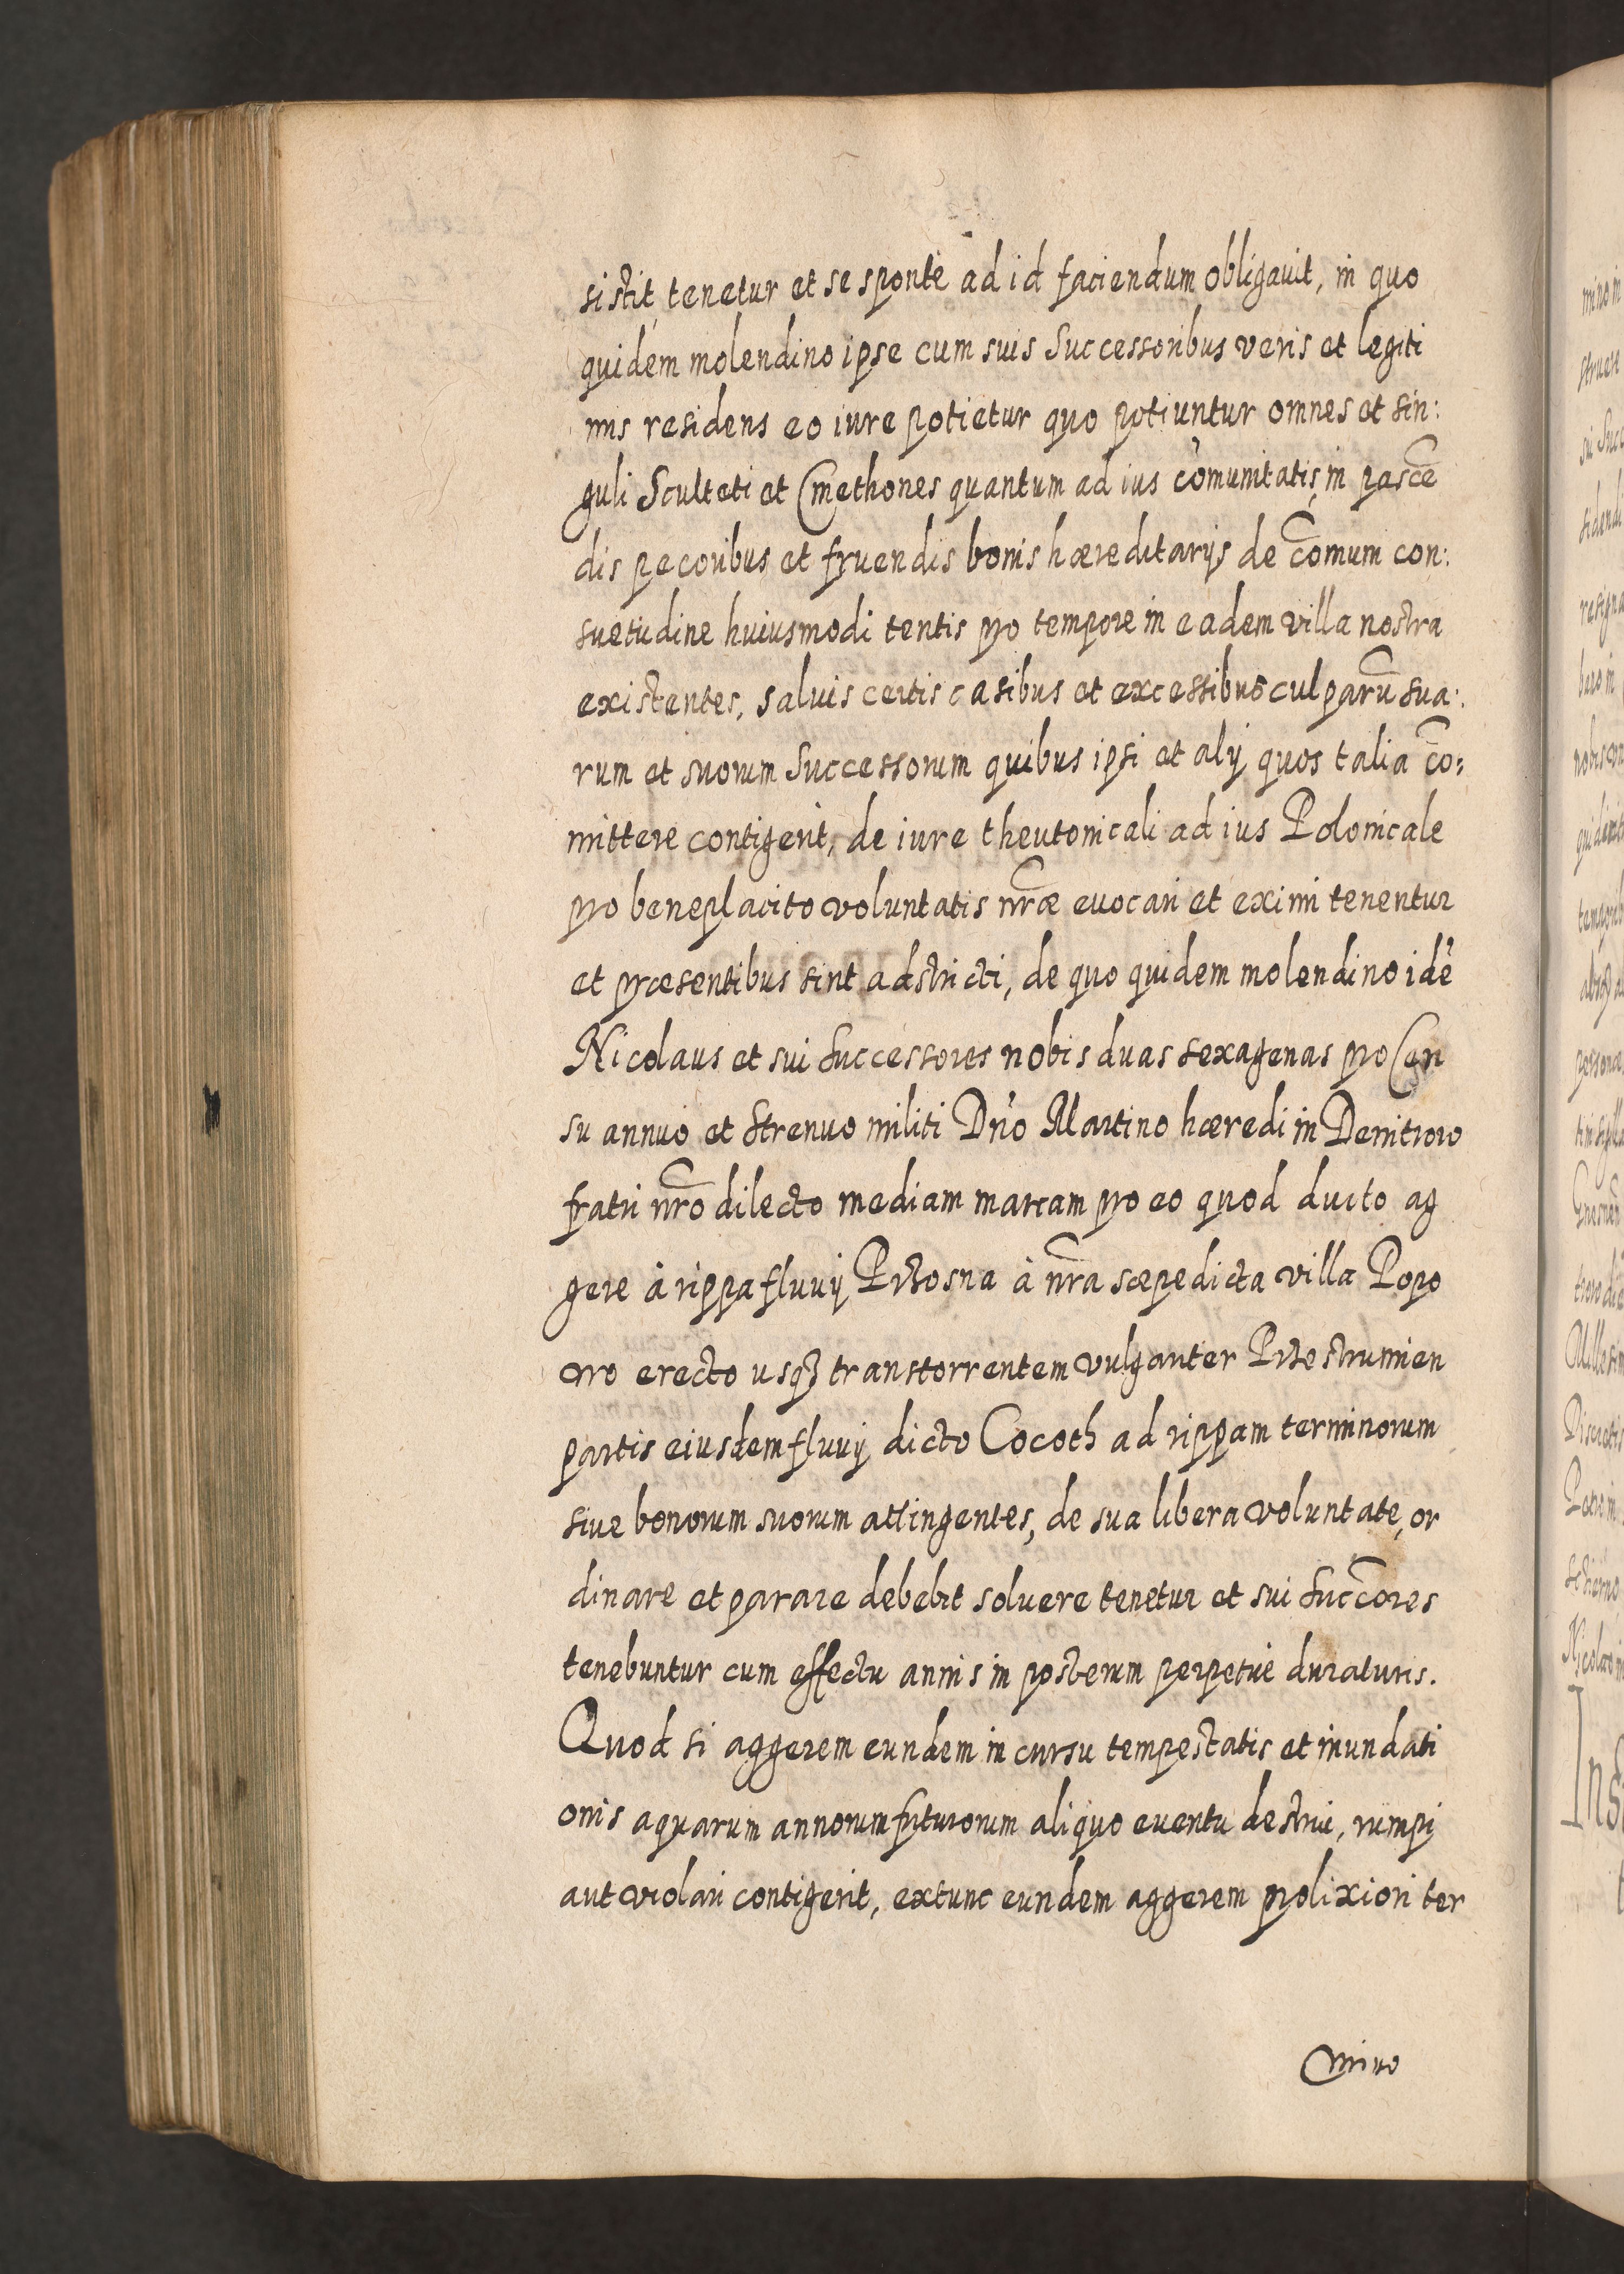 sistit, tenetur et se sponte ad id faciendum obligauit, in quo
quidem molendino ipse cum suis Successoribus veris et legiti
mis residens eo iure potietur quo potiuntur omnes et sin:
guli Sculteti et Cmethones quantum ad ius cõmunitatis, in pascẽ
dis pecoribus et fruendis bonis hæreditarijs de cõmum con:
suetudine huiusmodi tentis pro tempore in eadem villa nostra
existentes, saluis certis casibus et excessibus culparũ sua:
rum et suorum Successorum quibus ipsi et alij quos talia cõ:
mittere contigerit, de iure theutonicali ad ius Polonicale
pro beneplacito voluntatis nr̃æ euocari et eximi tenentur
et præsentibus sint adstricti, de quo quidem molendino idẽ
Nicolaus et sui Successores nobis duas sexagenas pro Cen
su annuo et Strenuo militi Dn̄o Martino hæredi in Demitrowo
fratri nr̃o dilecto mediam marcam pro eo quod ducto ag
gere à rippa fluuij Prosna à nr̃a sæpe dicta villa Popo
wo erecto usqȝ trans torrentem vulgariter
partis eiusdem fluuij dicto Cocoth ad rippam terminorum
siue bonorum suorum attingentes, de sua libera voluntate, or
dinare et parare debebit soluere tenetur et sui Succõres
tenebuntur cum effectu annis in posterum perpetuè duraturis.
Quod si aggerem eundem in cursu tempestatis et inundati
onis aquarum annorum futurorum aliquo euentu destrui, rumpi
aut violari contigerit, extunc eundem aggerem prolixiori ter
mino